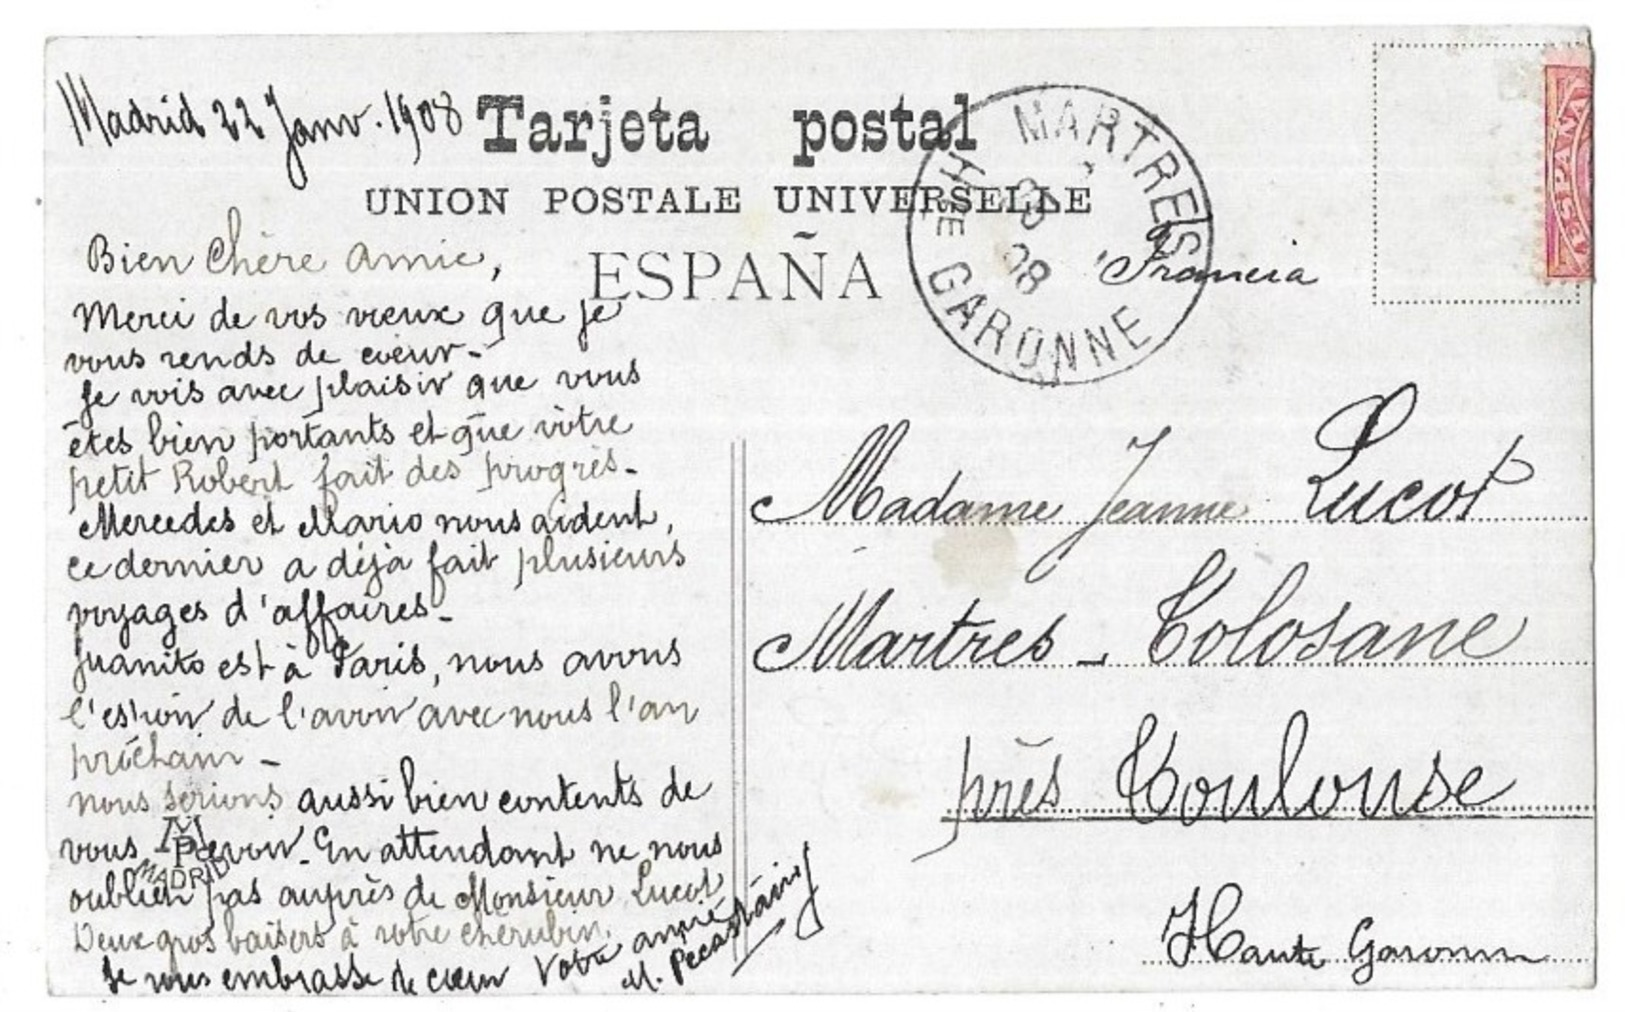 Madrid 22 Janv. 1908
Tarjeta postal
UNION POSTALE UNIVERSELLE
ESPAÑA
Bien Chère Amie,
Merci de vos vœux que je
vous rends de cœur -
Je vois avec plaisir que vous
êtes bien portants et que vôtre
petit Robert fait des progrès -
Mercedes et Mario nous aident,
ce dernier a déjà fait plusieurs
voyages d'affaires -
Juanito est à Paris, nous avons
l'espoir de l'avoir avec nous l'an
prochain -
nous serions aussi bien contents de
vous revoir. En attendant ne nous
oubliez pas auprès de Monsieur Lucot
Deux gros baisers à votre chérubin.
Je vous embrasse de cœur Votre amie
M. Pecastaing
MP
MADRID
MARTRES
08
HTE GARONNE
Francia
ESPAÑA
Madame Jeanne Lucot
Martres - Tolosane
près Toulouse
Haute Garonne